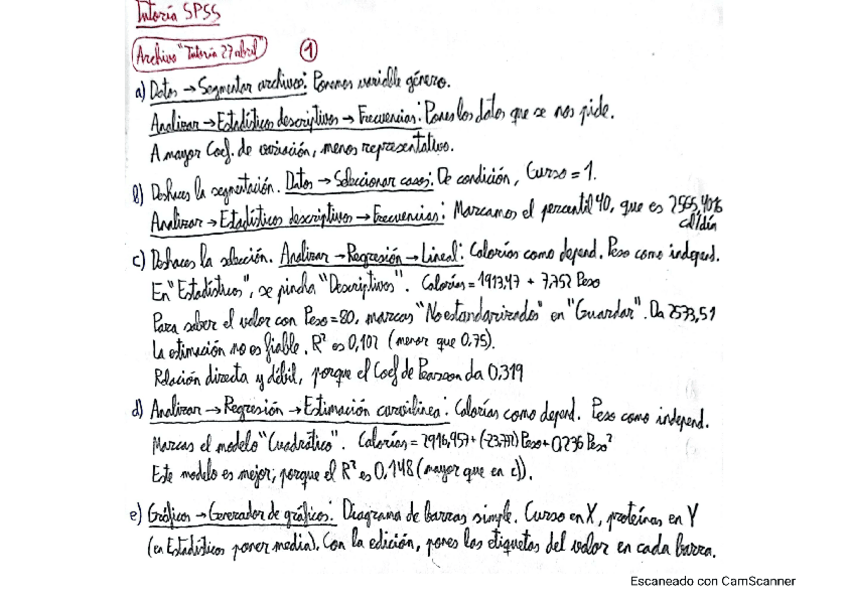 Tutoría SPSS
Archivo "Tutoría 27 abril" 1
a) Datos → Segmentar archivos: Ponemos variable género.
Analizar → Estadísticos descriptivos → Frecuencias: Pones los datos que se nos pide.
A mayor Coef. de variación, menos representativo.
b) Deshaces la segmentación. Datos → Seleccionar casos: De condición, Curso = 1.
Analizar → Estadísticos descriptivos → Frecuencias: Marcamos el percentil 40, que es 2565,4016
cal/día
c) Deshaces la selección. Analizar → Regresión → Lineal: Calorías como depend. Peso como independ.
En "Estadísticos", se pincha "Descriptivos". Calorías = 1913,47 + 7,752 Peso
Para saber el valor con Peso = 80, marcas "No estandarizados" en "Guardar". Da 2533,51
La estimación no es fiable. R² es 0,102 (menor que 0,75).
Relación directa y débil, porque el Coef de Pearson da 0,319
d) Analizar → Regresión → Estimación curvilínea: Calorías como depend. Peso como independ.
Marcas el modelo "Cuadrático". Calorías = 2916,957 + (-23,772) Peso + 0,236 Peso²
Este modelo es mejor, porque el R² es 0,148 (mayor que en c)).
e) Gráficos → Generador de gráficos: Diagrama de barras simple. Curso en X, proteínas en Y
(en Estadísticos poner media). Con la edición, pones las etiquetas del valor en cada barra.
Escaneado con CamScanner